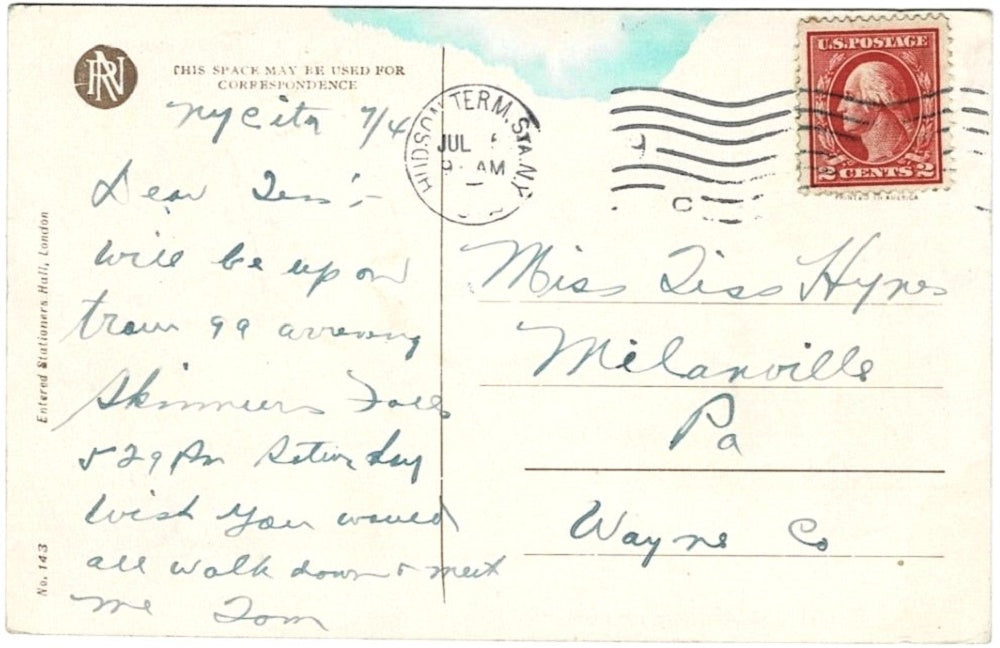 THIS SPACE MAY BE USED FOR
CORRESPONDENCE
NY City 7/4
Dear Tess:-
Will be up on
train 99 arriving
Skinners Falls
5 29 PM Saturday
Wish you would
all walk down & meet
me Tom
Entered Stationers Hall, London
No. 143
HUDSON TERM. STA. N.Y.
JUL
9 AM
U.S. POSTAGE
2 CENTS 2
PRINTED IN AMERICA
Miss Tess Hynes
Milanville
Pa
Wayne Co